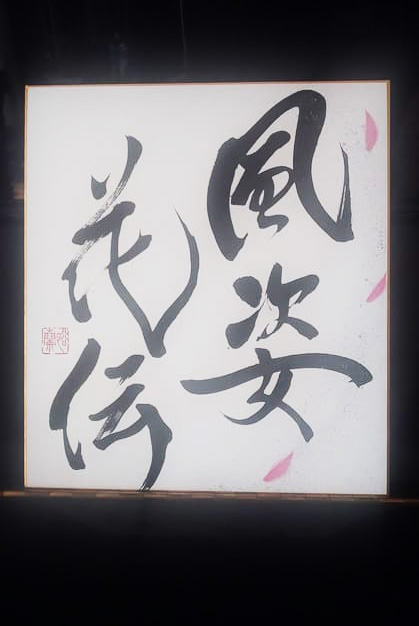 風姿
花伝